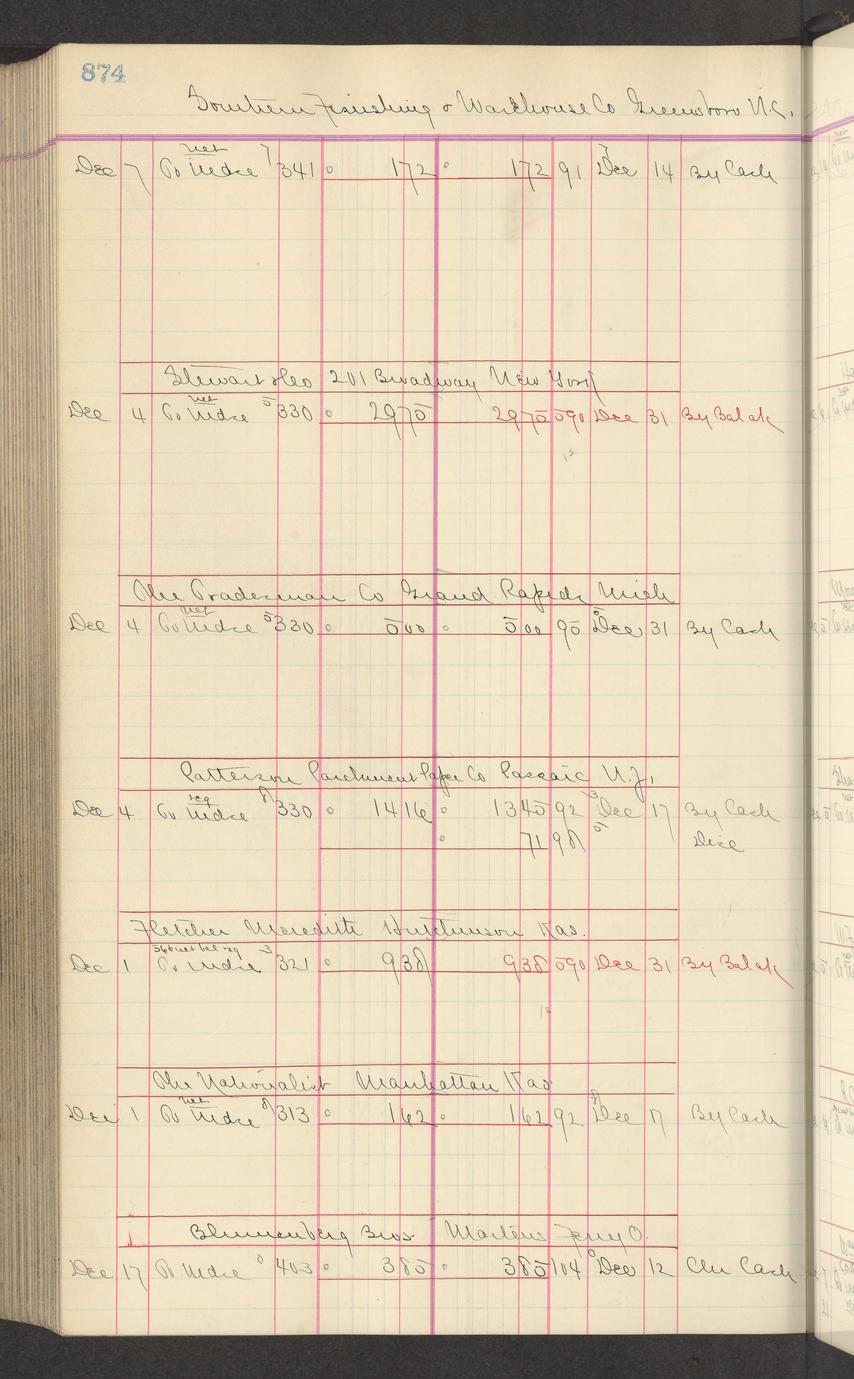 874
Southern Finishing & Warehouse Co Greensboro N.C.
net 7 7
Dec 7 To Mdse 341 172 172 91 Dec 14 By Cash
Stewart & Co 201 Broadway New York
net 5
Dec 4 To Mdse 330 2975 2975 590 Dec 31 By Bal
15
The Tradesman Co Grand Rapids Mich
net 5 0
Dec 4 To Mdse 330 500 500 95 Dec 31 By Cash
Patterson Parchment Paper Co Passaic N.J.
reg 8 3
Dec 4 To Mdse 330 1416 1345 92 Dec 17 By Cash
71 98 5 Disc
Fletcher Meredith Hutchinson Kas.
net bal reg 3
Dec 1 To Mdse 321 938 938 590 Dec 31 By Bal
The Nationalist Manhattan Kas
net 8 8
Dec 1 To Mdse 313 162 162 92 Dec 17 By Cash
Blumenberg Bros Martins Ferry O.
0 0
Dec 17 To Mdse 403 385 385 104 Dec 12 Cash